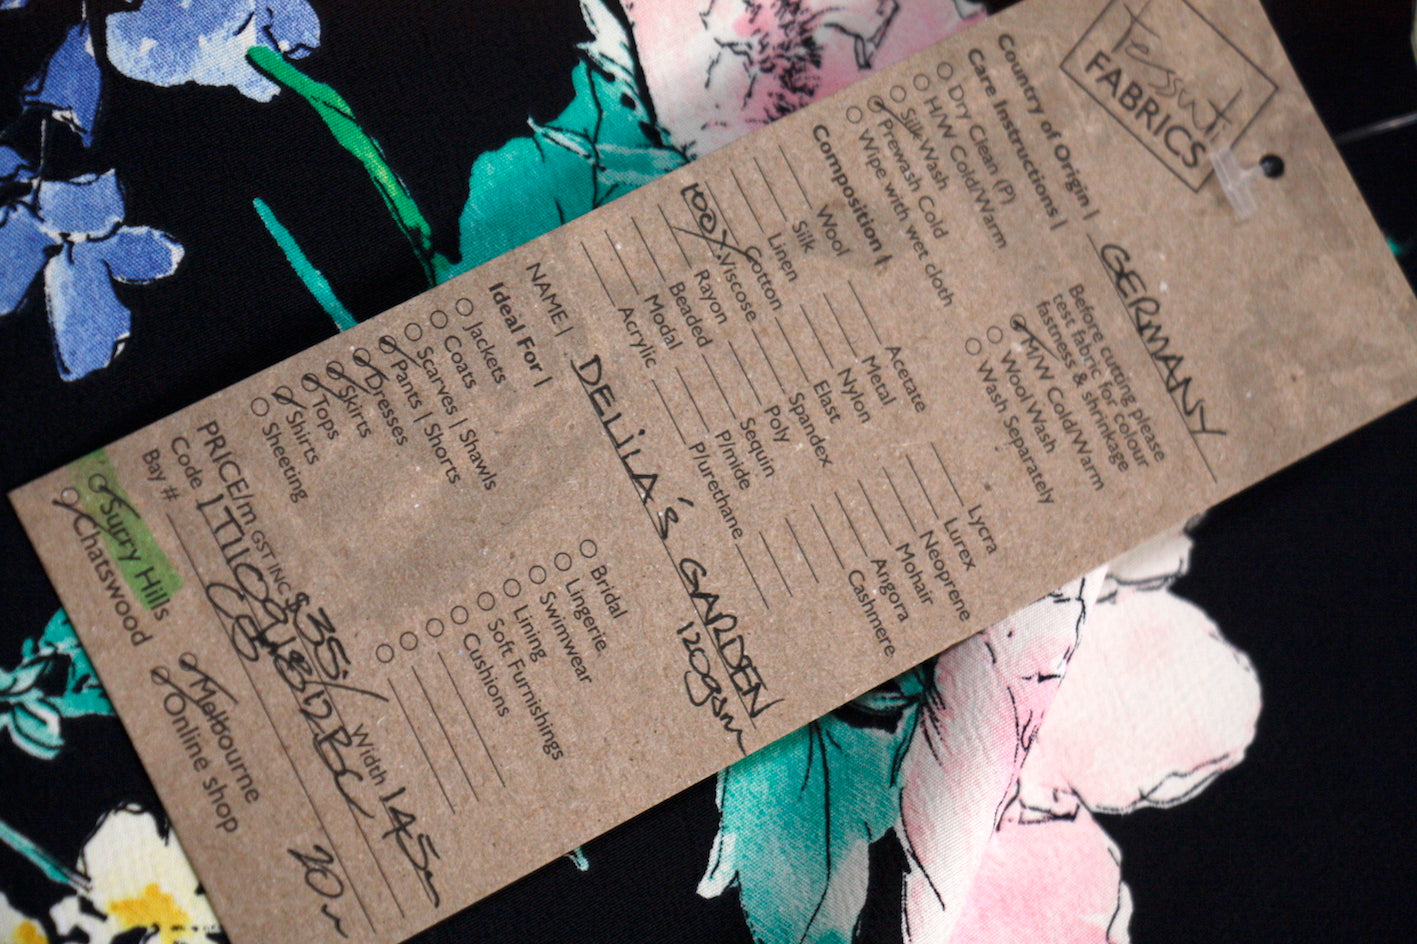 Tessuti
FABRICS
Country of Origin | GERMANY
Care Instructions |
Before cutting please
test fabric for colour
fastness & shrinkage
Dry Clean (P)
H/W Cold/Warm
Silk Wash
Prewash Cold
Wipe with wet cloth
M/W Cold/Warm
Wool Wash
Wash Separately
Composition |
Wool
Silk
Linen
Cotton
100% Viscose
Rayon
Beaded
Modal
Acrylic
Acetate
Metal
Nylon
Elast
Spandex
Poly
Sequin
P/mide
P/urethane
Lycra
Lurex
Neoprene
Mohair
Angora
Cashmere
NAME | DELILA'S GARDEN
120gsm
Ideal For |
Jackets
Coats
Scarves | Shawls
Pants | Shorts
Dresses
Skirts
Tops
Shirts
Sheeting
Bridal
Lingerie
Swimwear
Lining
Soft Furnishings
Cushions
PRICE/m GST INC $35/ Width 145
Code
Bay #
Surry Hills
Chatswood
Melbourne
Online shop